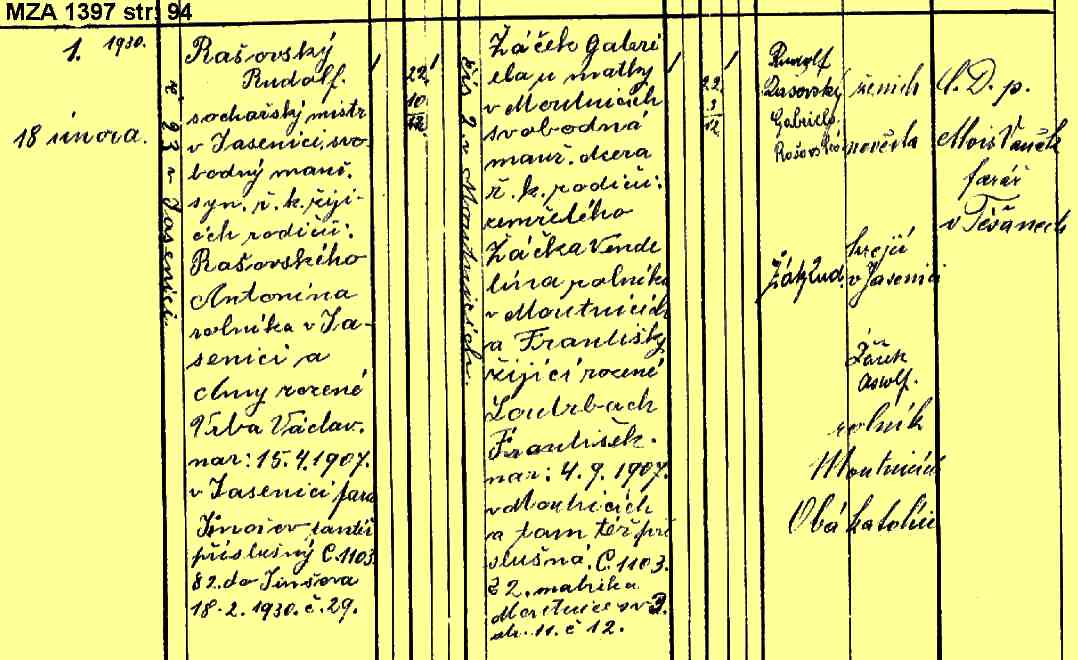 MZA 1397 str. 94
1. 1930.
18 února.
č 93 v Jasenici.
Rašovský
Rudolf.
sochařský mistr
v Jasenici, svo-
bodný manž.
syn. ř. k. žijí-
cích rodičů:
Rašovského
Antonína
rolníka v Ja-
senici a
Anny rozené
Vrba Václav.
nar: 15.4.1907.
v Jasenici fara
tamtéž
příslušný Č. 1103.
82. do Jinšova
18.2. 1930. č. 29.
/
22
10
12
/
čís 2 v Moutnicích.
Žáček Gabri
ela u matky
v Moutnicích
svobodná
manž. dcera
ř. k. rodičů:
zemřelého
Žáčka Vende
lína rolníka
v Moutnicích
a Františky
žijící rozené
Loutrbach
František.
nar: 4.9.1907.
v Moutnicích
a tam též pří
slušná. Č. 1103.
č 2. matrika
Moutnice sv
str. 11. č 12.
/
22
12
/
Rudolf
Rašovský ženich
Gabriela
Rašovská nevěsta
Žák Lud. krejčí
v Jasenici
Žáček
Adolf.
rolník
Moutnicích
Oba katolíci
S. D. p.
Alois Vaněk
farář
v Těšanech